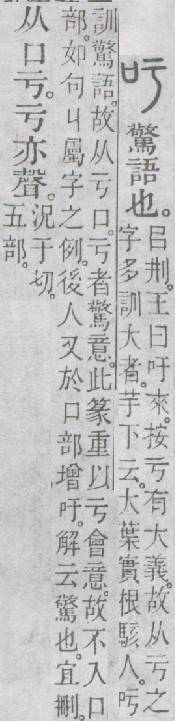 吁 驚語也。
呂荆。王曰吁來。按亏有大義。故从亏之
字多訓大者。芋下云。大葉實根駭人。吁
訓驚語。故从亏口。亏者驚意。此篆重以亏會意。故不入口
部。如句丩屬字之例。後人又於口部增吁。解云驚也。宜刪。
从口亏。亏亦聲。
況于切。
五部。